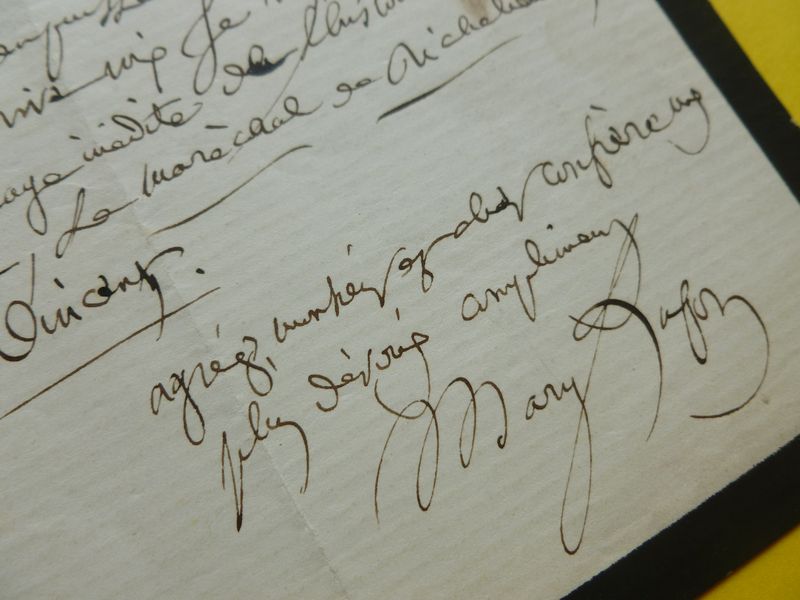 vive voix Je
page inédite de l'histoi
Le maréchal de Richelieu
Vincent.
agréez, monsieur et cher confrère mes
plus dévoués compliments
Mary Lafon